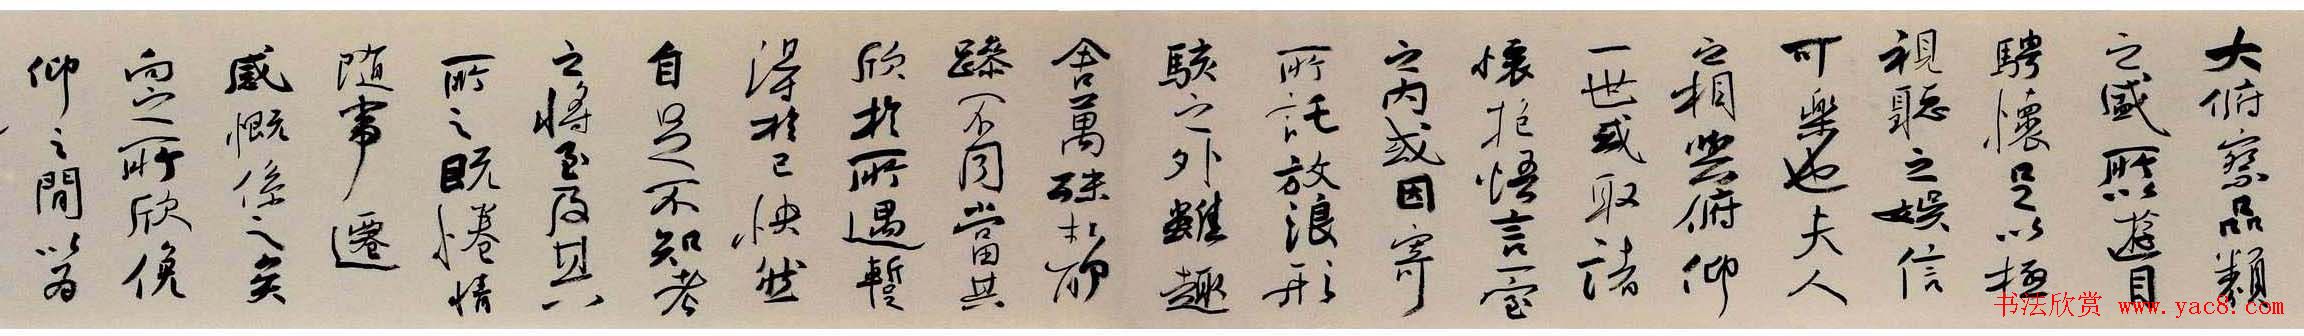 大俯察品類
之盛所以遊目
騁懷足以極
視聽之娛信
可樂也夫人
之相與俯仰
一世或取諸
懷抱悟言一室
之內或因寄
所託放浪形
骸之外雖趣
舍萬殊靜
躁不同當其
欣於所遇暫
得於己快然
自足不知老
之將至及其
所之既惓情
隨事遷
感慨係之矣
向之所欣俛
仰之間以為
书法欣赏 www.yac8.com